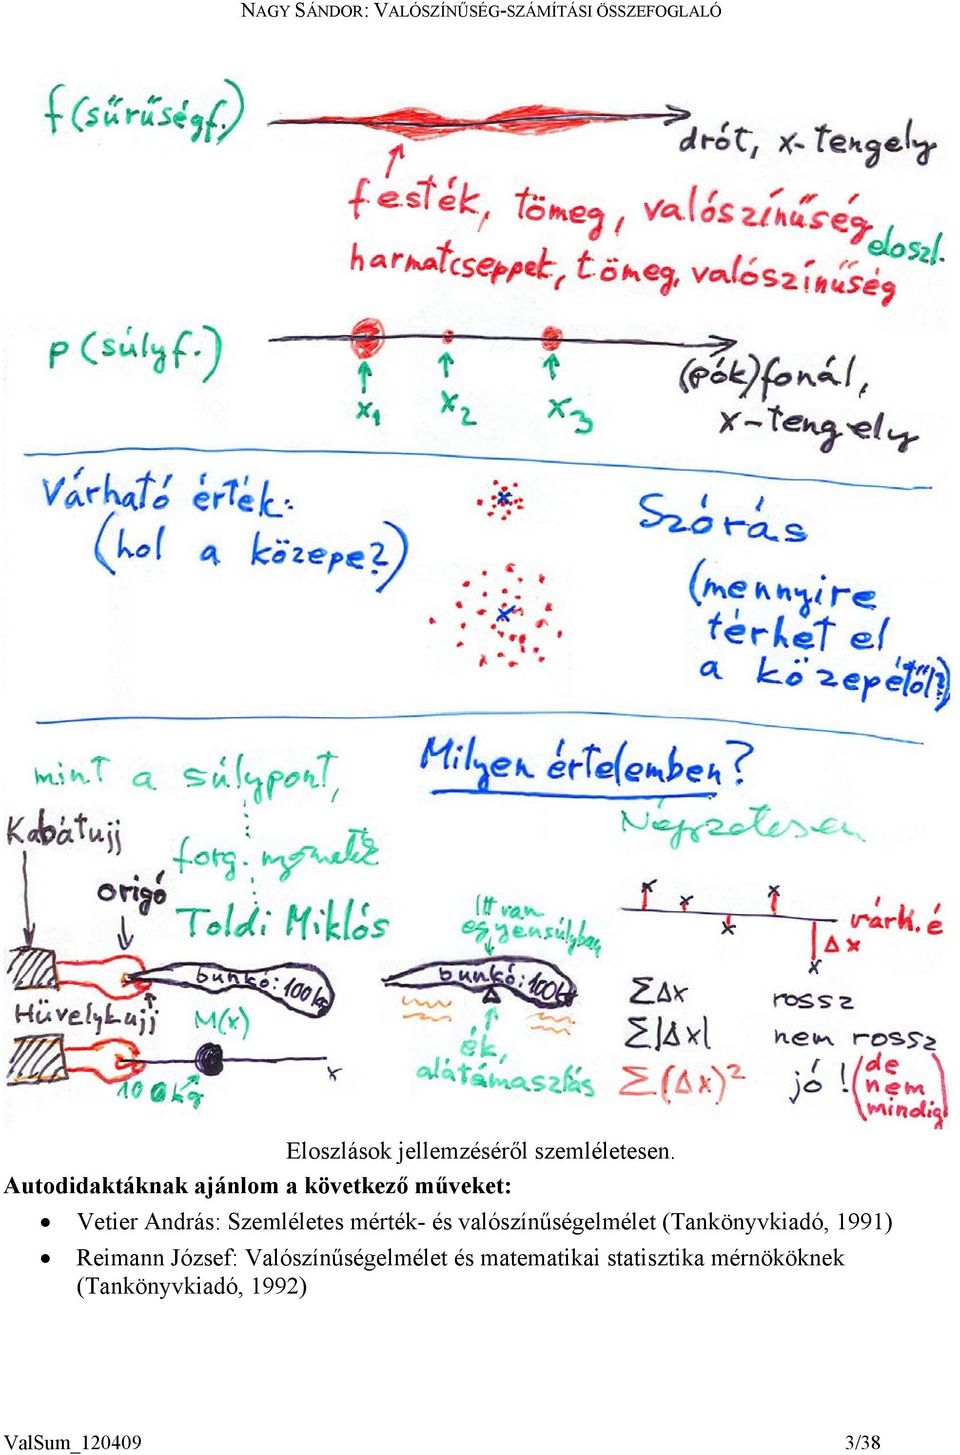 NAGY SÁNDOR: VALÓSZÍNŰSÉG-SZÁMÍTÁSI ÖSSZEFOGLALÓ
f (sűrűségf.)
drót, x-tengely
festék, tömeg, valószínűség
eloszl.
harmatcseppek, tömeg, valószínűség
p (súlyf.)
(pók)fonál,
x-tengely
x1 x2 x3
Várható érték:
(hol a közepe?)
Szórás
(mennyire
térhet el
a középétől?)
mint a súlypont,
Milyen értelemben?
Kabátujj
Négyzetesen
forg. nyomaték
origó
Toldi Miklós
Itt van
egyensúlyban
várh.é
Δx
bunkó: 100kg
bunkó: 100kg
Hüvelykujj
M(x)
ék,
alátámasztás
x
100kg
ΣΔx rossz
Σ|Δx| nem rossz
Σ(Δx)² jó! (de
nem
mindig)
Eloszlások jellemzéséről szemléletesen.
Autodidaktáknak ajánlom a következő műveket:
• Vetier András: Szemléletes mérték- és valószínűségelmélet (Tankönyvkiadó, 1991)
• Reimann József: Valószínűségelmélet és matematikai statisztika mérnököknek
(Tankönyvkiadó, 1992)
ValSum_120409 3/38